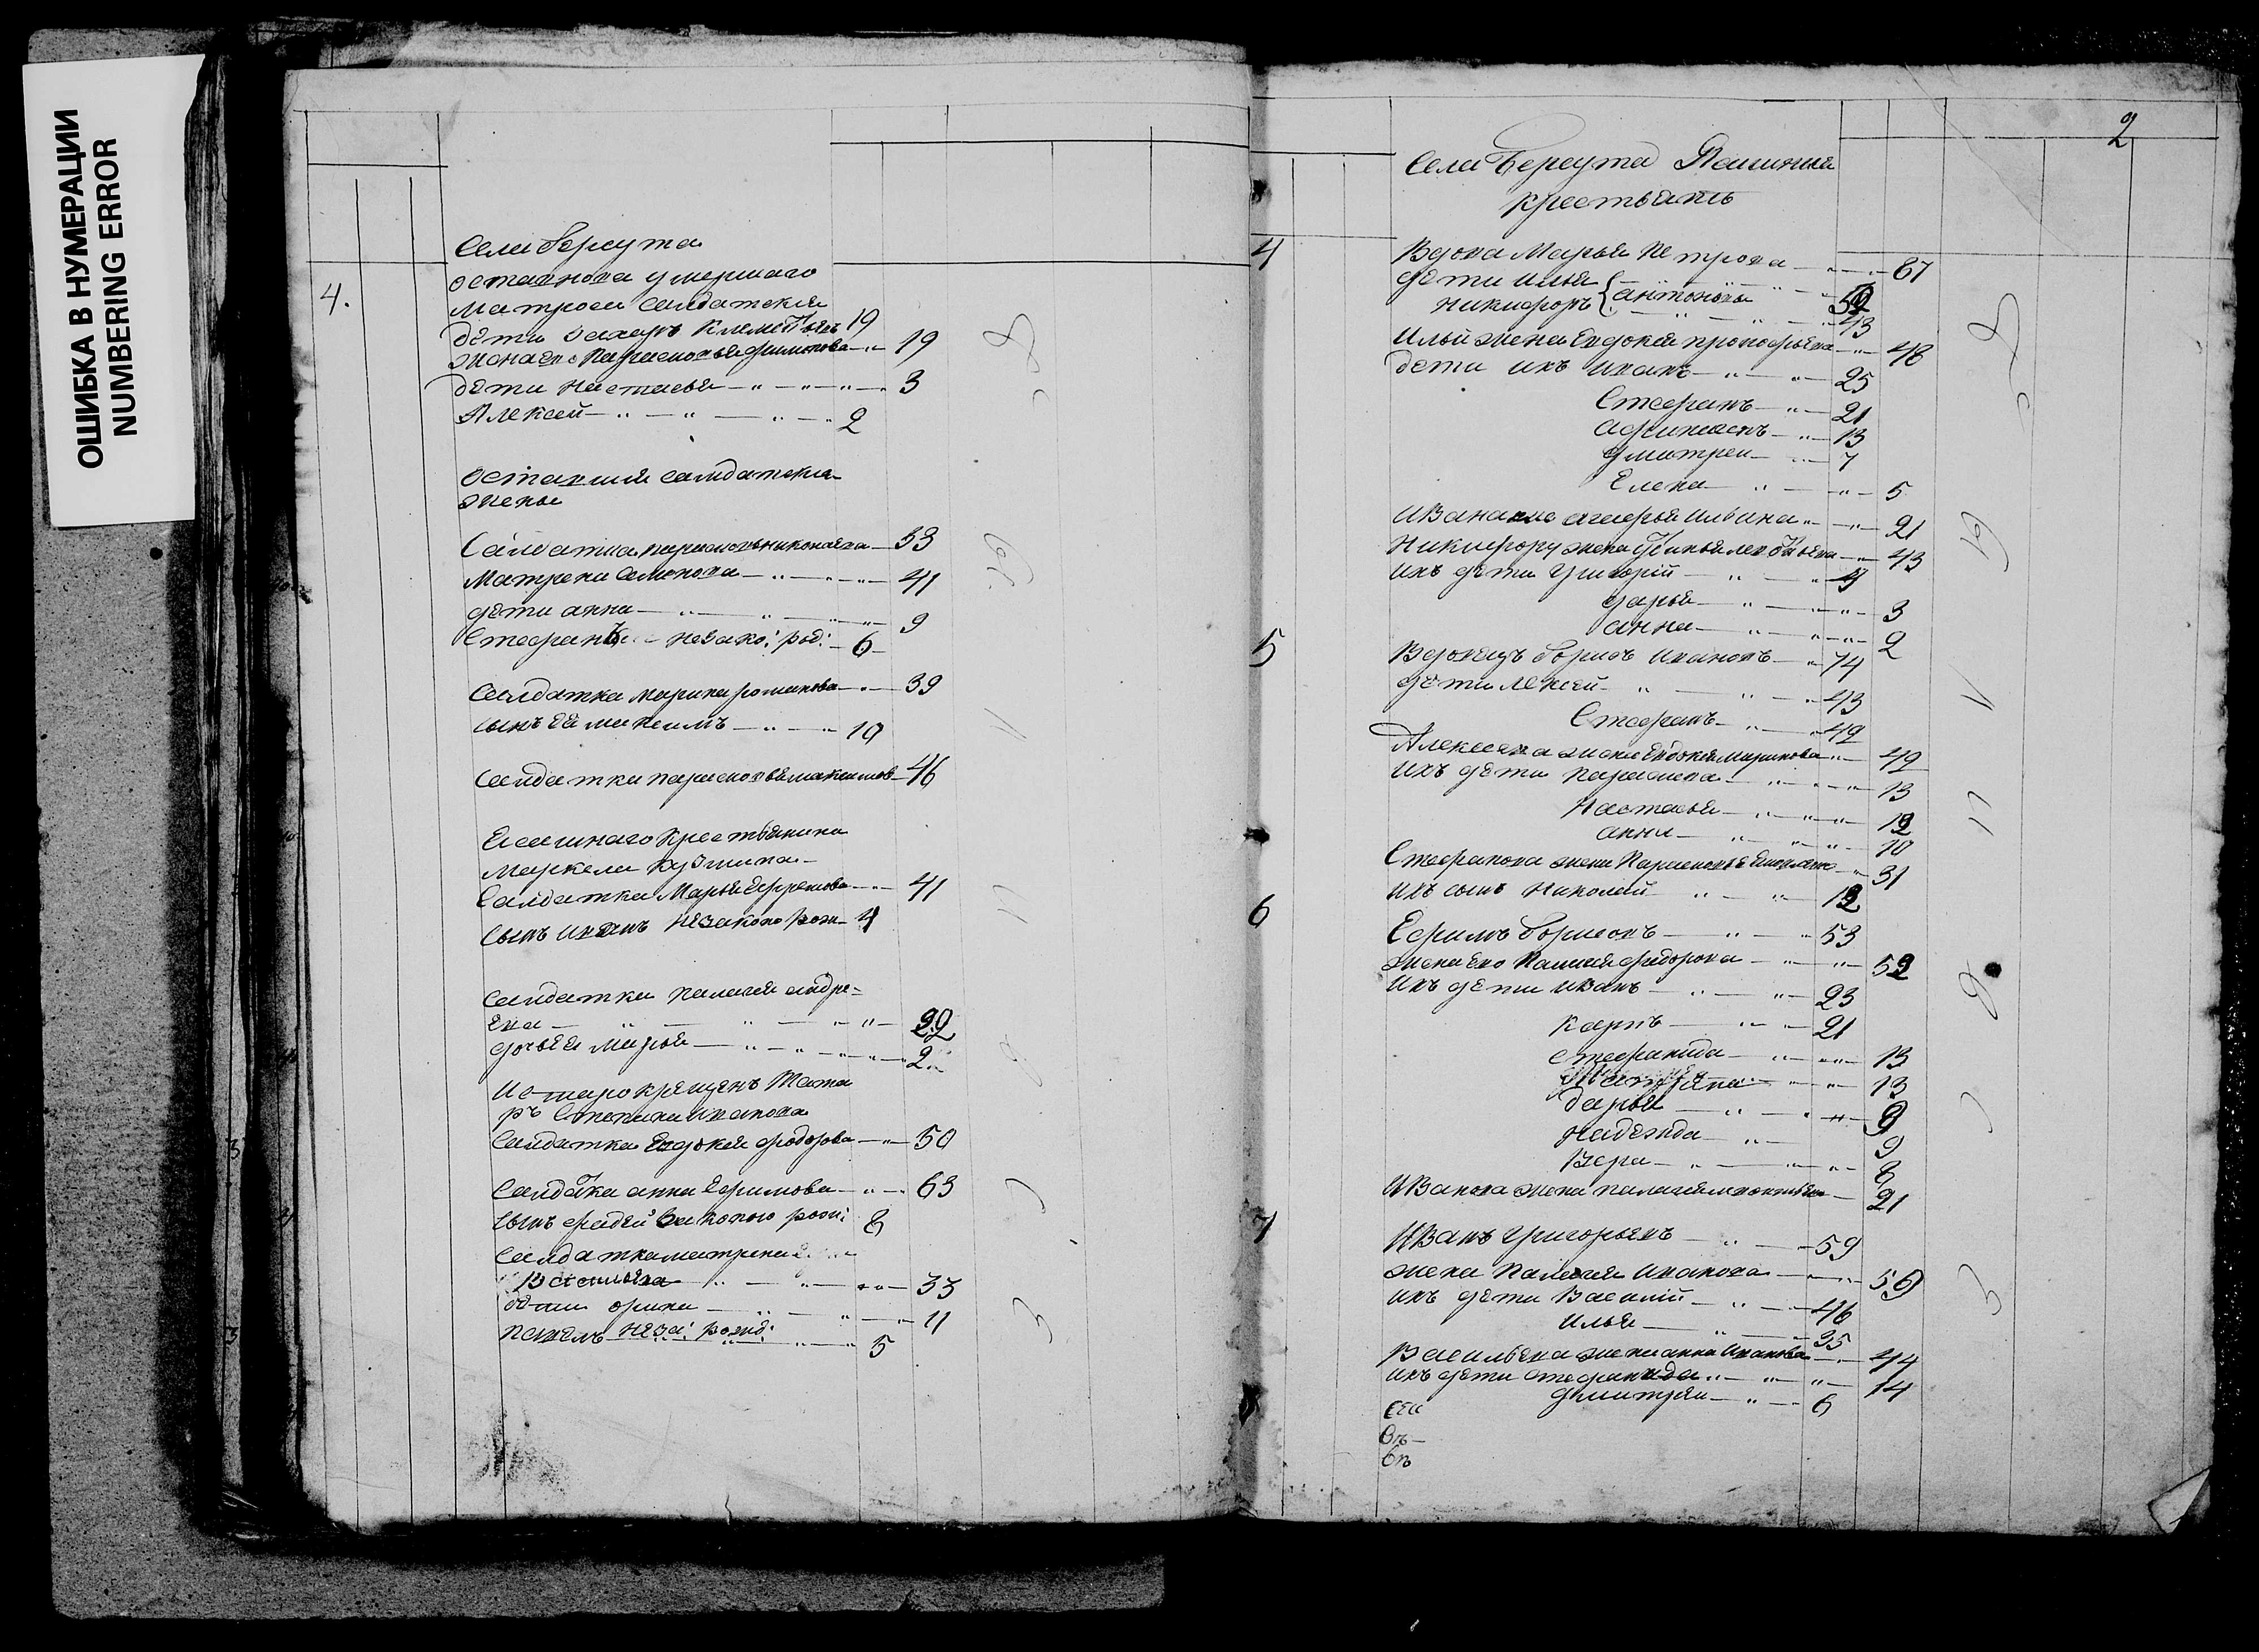 ОШИБКА В НУМЕРАЦИИ
NUMBERING ERROR
Села Берсута
4.
оставшова умершаго
матроса салдатския
дѣти Захаръ Клеме 19
жена его Парасковья Филипова 19
дѣти Настасья 3
Алексей 2
Оставшия салдатския
жены
Салдатка парасковья никонаева 33
Матрена Семенова 41
дѣти анна 9
Стефанъ незако: род: 6
Салдатка марина романова 39
сынъ ея максимъ 10
салдатка парасковья максимов 46
Ясашнаго крестьянина
маркела кузмина
Салдатка Марья Ефремова 41
сынъ иванъ незаконо рож 4
салдатка палагея андре-
ева 22
дочь ея марья 2
Из старо крещенъ Тата
ръ Степана иванова
салдатка Евдокея федорова 50
Салдатка анна Ефимова 63
сынъ фадей законою рож: 8
Салдатка матрена
Васильева 33
дѣти орина 11
павелъ неза: рожд: 5
2
Села Берсута Пашинна
крестьянъ
4 Вдова Марья Петрова 67
дѣти илья
никифоръ { антоновы 52
43
Ильи жена Евдокея прокофьева 48
дѣти ихъ иванъ 25
Стефанъ 21
афонасеъ 13
дмитреи 7
Елена 5
Ивана жена агафья Ильина 21
Никифору жена 43
ихъ дѣти Григорій 9
дарья 3
анна 2
5 Вдовецъ борисъ ивановъ 74
дѣти алексей 43
Стефанъ 42
Алексеева жена Евдокея миронова 42
ихъ дѣти парасковя 13
Настасья 12
анна 10
Стефанова жена Парасковья 31
ихъ сынъ николай 12
6 Ефимъ борисовъ 53
жена Его Палагея федорова 52
ихъ дѣти иванъ 23
карпъ 21
стефанида 13
13
дарья 9
надежда 9
Вера 8
Иванова жена палагея 21
7 Иванъ григорьевъ 59
жена Палагея иванова 59
ихъ дѣти Василій 46
илья 35
Васильева жена анна иванова 44
ихъ дѣти стефанида 14
дмитреи 6